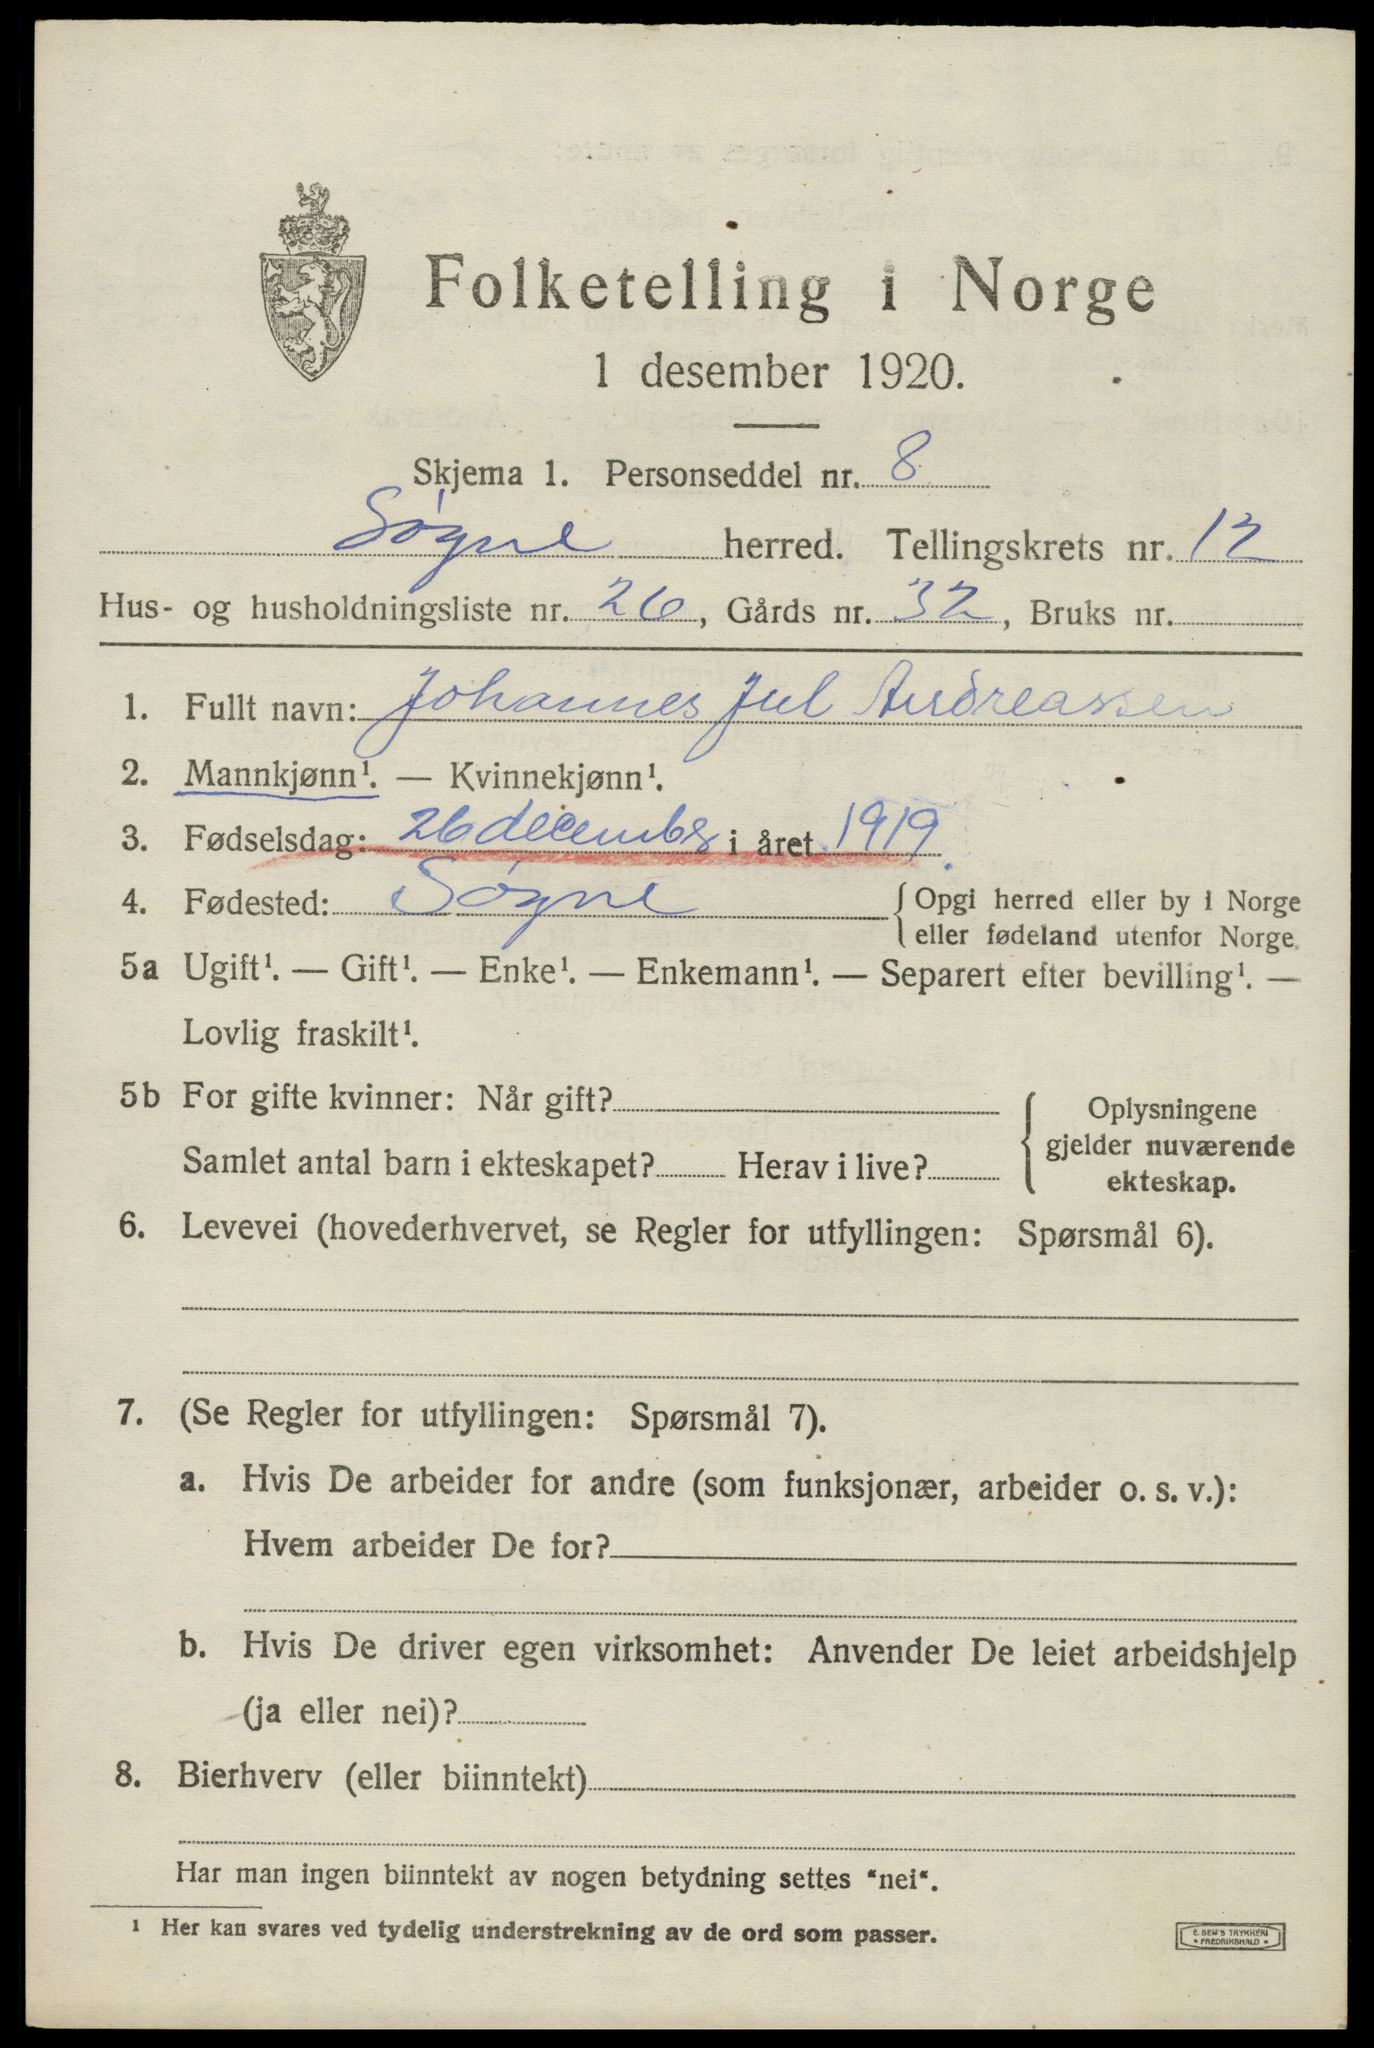 Folketelling i Norge
1 desember 1920.
Skjema 1. Personseddel nr. 8
Søgne herred. Tellingskrets nr. 12
Hus- og husholdningsliste nr. 26, Gårds nr. 32, Bruks nr.
1. Fullt navn: Johannes Jul Andreassen
2. Mannkjønn¹. — Kvinnekjønn¹.
3. Fødselsdag: 26 december i året 1919.
4. Fødested: Søgne { Opgi herred eller by i Norge
eller fødeland utenfor Norge.
5a Ugift¹. — Gift¹. — Enke¹. — Enkemann¹. — Separert efter bevilling¹. —
Lovlig fraskilt¹.
5b For gifte kvinner: Når gift?
Samlet antal barn i ekteskapet? Herav i live?
{ Oplysningene
gjelder nuværende
ekteskap.
6. Levevei (hovederhvervet, se Regler for utfyllingen: Spørsmål 6).
7. (Se Regler for utfyllingen: Spørsmål 7).
a. Hvis De arbeider for andre (som funksjonær, arbeider o. s. v.):
Hvem arbeider De for?
b. Hvis De driver egen virksomhet: Anvender De leiet arbeidshjelp
(ja eller nei)?
8. Bierhverv (eller biinntekt)
Har man ingen biinntekt av nogen betydning settes "nei".
¹ Her kan svares ved tydelig understrekning av de ord som passer.
E. SEM'S TRYKKERI
• FREDRIKSHALD •